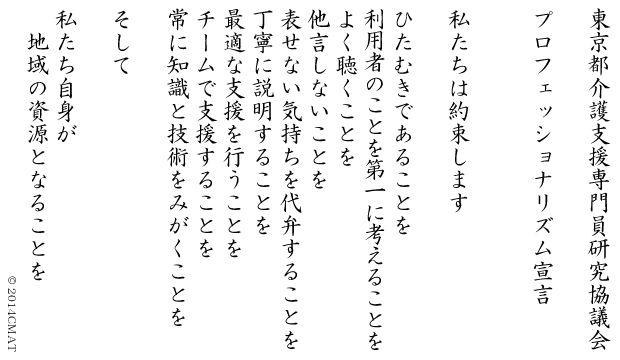 東京都介護支援専門員研究協議会
プロフェッショナリズム宣言
私たちは約束します
ひたむきであることを
利用者のことを第一に考えることを
よく聴くことを
他言しないことを
表せない気持ちを代弁することを
丁寧に説明することを
最適な支援を行うことを
チームで支援することを
常に知識と技術をみがくことを
そして
私たち自身が
地域の資源となることを
© 2014CMAT